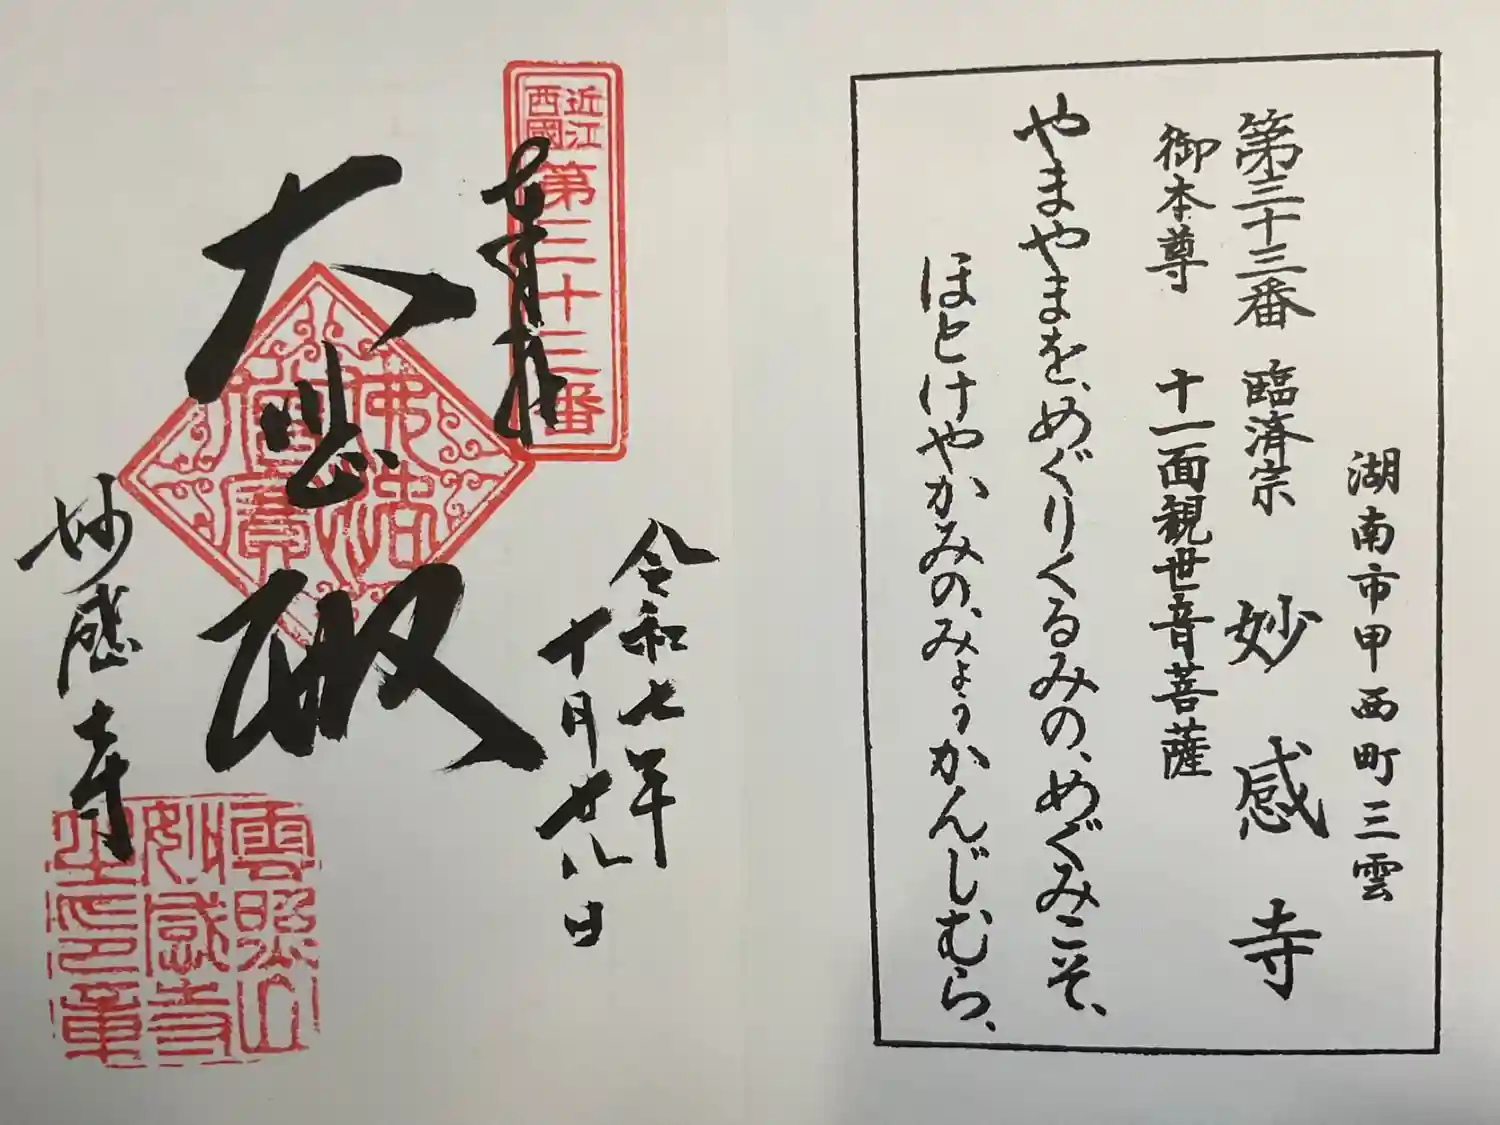 湖南市甲西町三雲
第三十三番 臨済宗 妙感寺
御本尊 十一面観世音菩薩
やまやまを、めぐりくるみの、めぐみこそ、
ほとけやかみの、みょうかんじむら、
近江
西國
第三十三番
奉拝
令和七年
十月廿八日
大悲殿
佛法
僧寶
妙感寺
雲照山
妙感寺
之印章